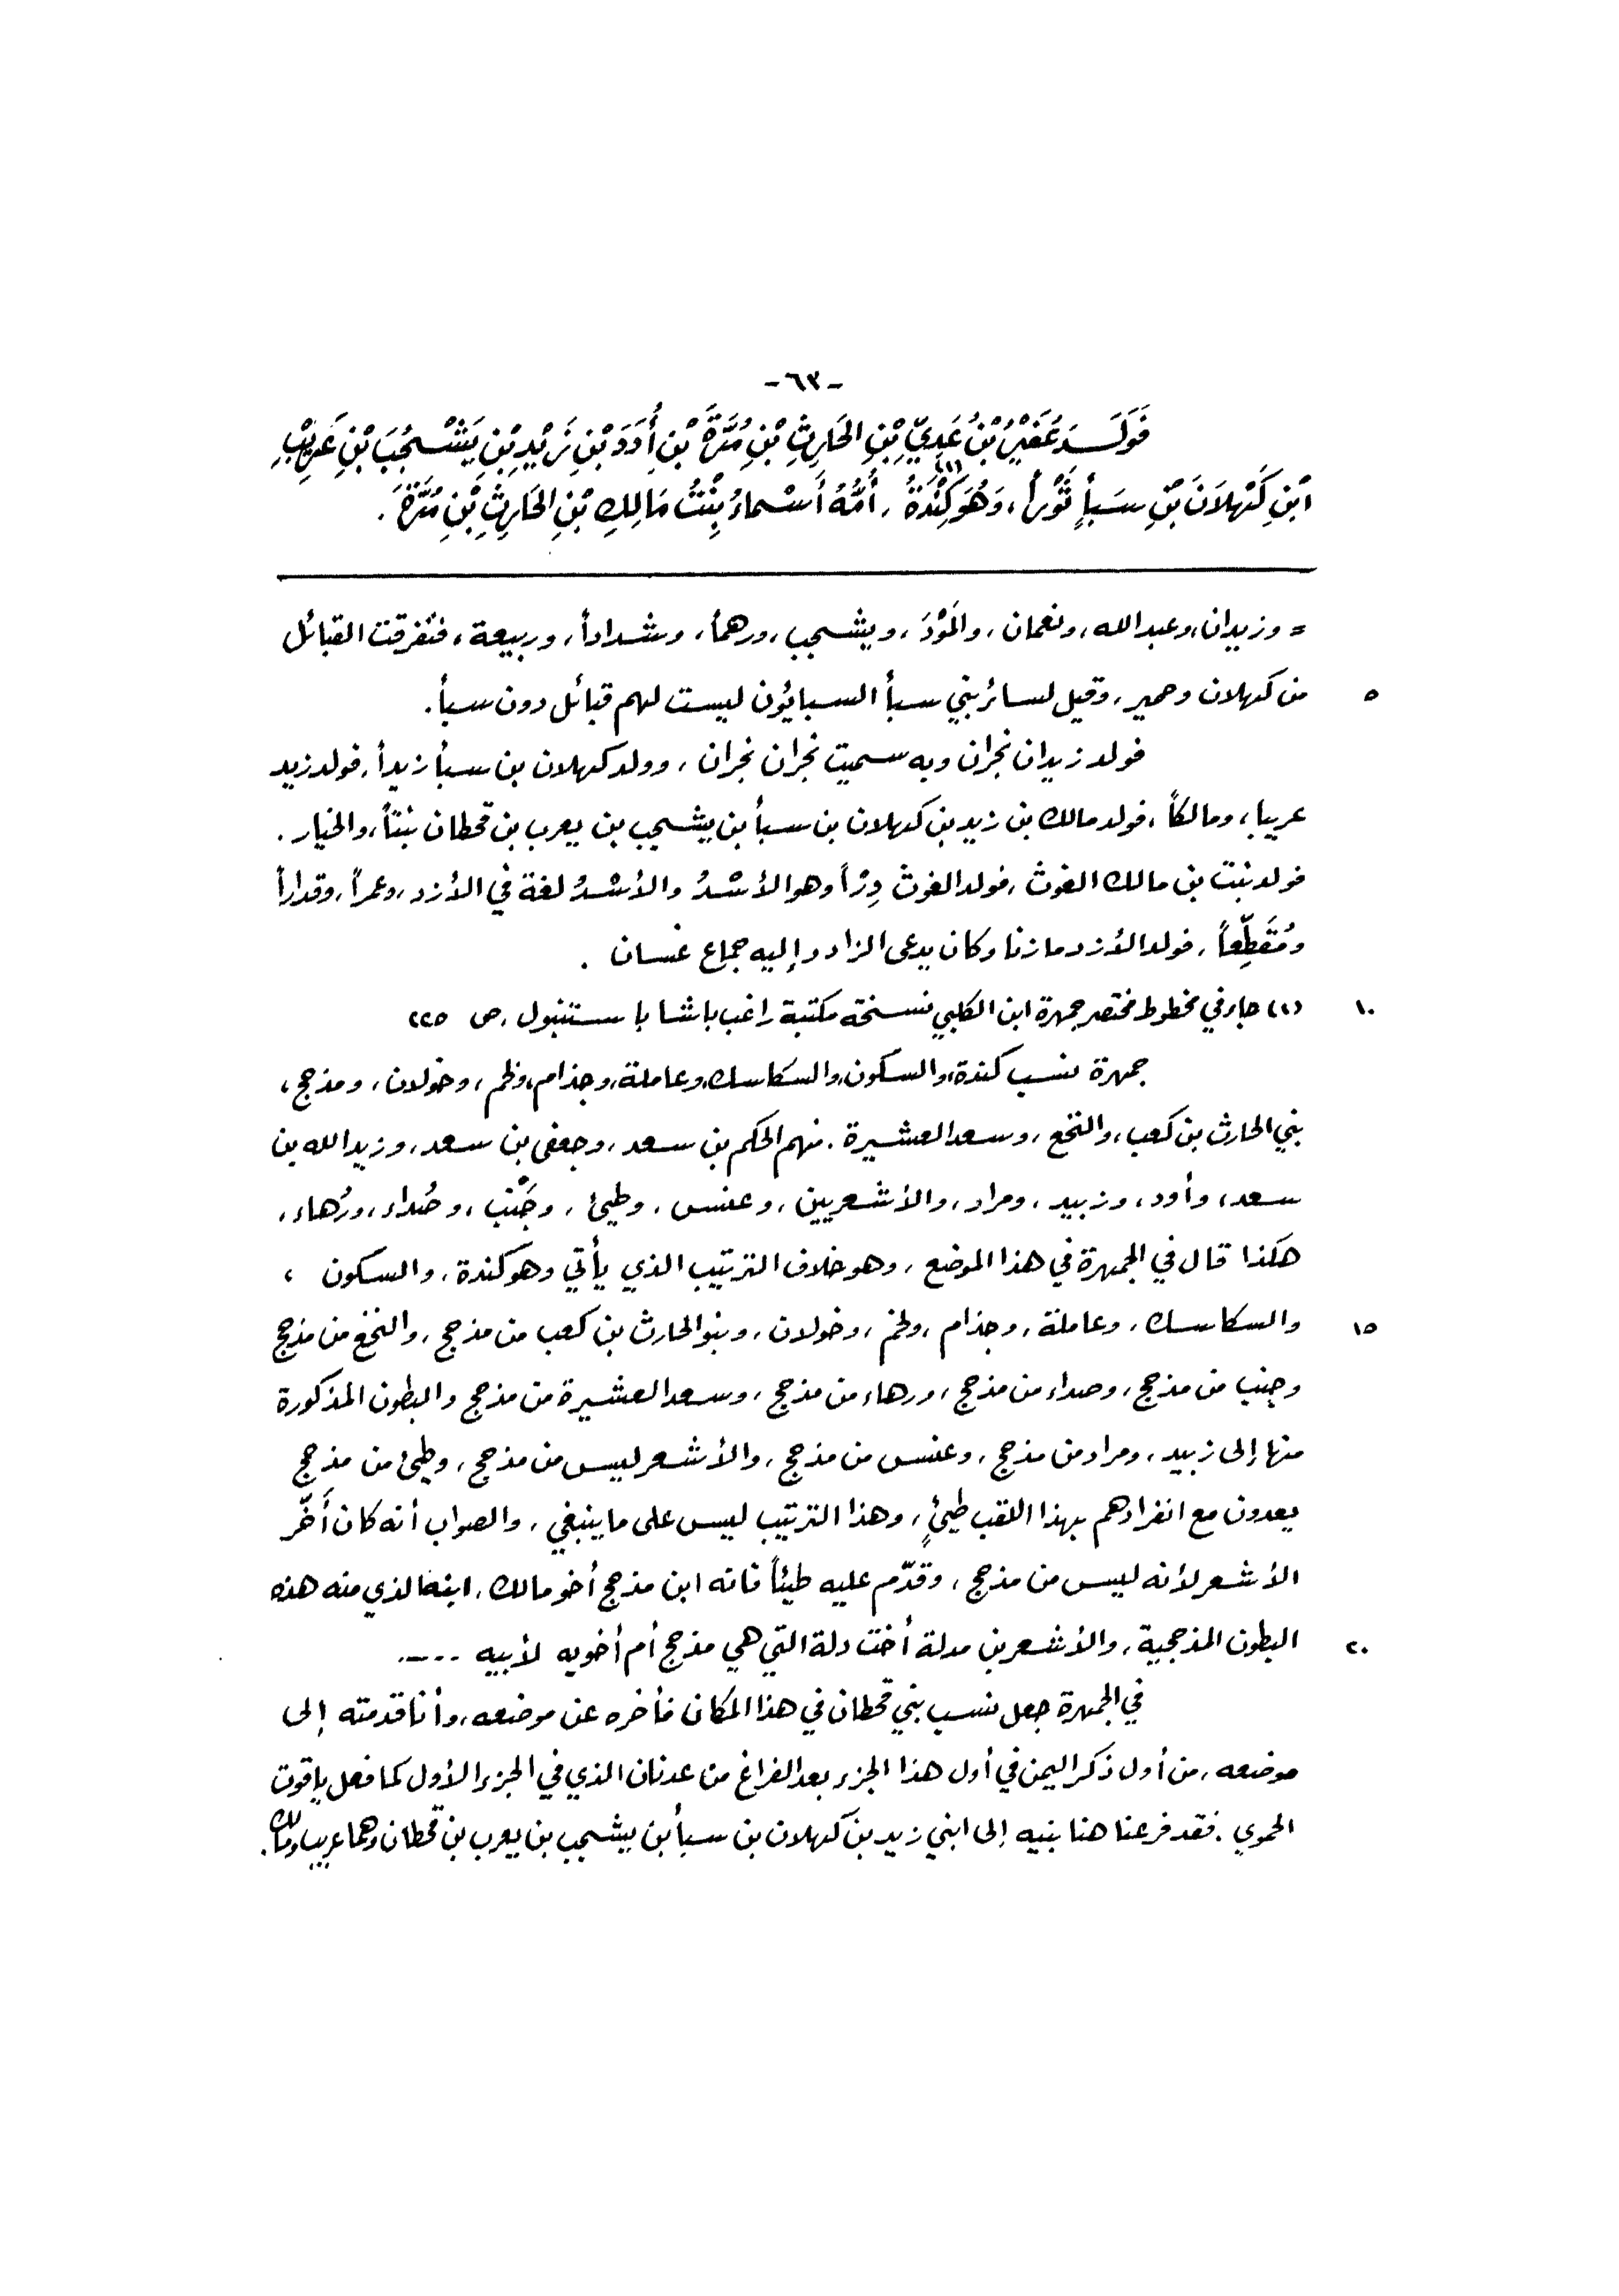 -٦٣-
فَوَلَـدَ عُفَيْرُ بْنُ عَدِيِّ بْنِ الحَارِثِ بْنِ مُرَّةَ بْنِ أُدَدَ بْنِ زَيْدِ بْنِ يَشْجُبَ بْنِ عَرِيْبِ
ابْنِ كَهْلَانَ بْنِ سَبَأٍ ثَوْراً، وَهُوَ كِنْدَةُ (١)، أُمُّهُ أَسْماءُ بِنْتُ مَالِكِ بْنِ الحَارِثِ بْنِ مُرَّةَ.
= وزيدان، وعبدالله، ونعمان، والمَوْدَ، ويشجب، ورهماً، وشداداً، وربيعة، فتفرقت القبائل
٥ من كهلان وحمير، وقيل لسائر بني سبأ السبايُون ليست لهم قبائل دون سبأ.
فولد زيدان نجران وبه سميت نجران نجران، وولد كهلان بن سبأ زيداً، فولد زيد
عريبا، ومالكاً، فولد مالك بن زيد بن كهلان بن سبأ بن يشجب بن يعرب بن قحطان نبتاً، والخيار.
فولد نبت بن مالك الغوث، فولد الغوث دِرْاً وهو الأسْدُ والأسْدُ لغة في الأزد، وعمراً، وقداراً
ومُقَطِّعاً، فولد الأزد مازنا وكان يدعى الزاد وإليه جماع غسان.
١٠ (١) جاء في مخطوط مختصر جمهرة ابن الكلبي نسخة مكتبة راغب باشا باستنبول، ص ٢٢٥
جمهرة نسب كندة، والسكون، والسكاسك، وعاملة، وجذام، ولخم، وخولان، ومذحج،
بني الحارث بن كعب، والنخع، وسعد العشيرة. منهم الحكم بن سعد، وجعفى بن سعد، وزيد الله بن
سعد، وأود، وزبيد، ومراد، والأشعريين، وعنس، وطيئ، وجَنْب، وصُداء، ورُهاء،
هكذا قال في الجمهرة في هذا الموضع، وهو خلاف الترتيب الذي يأتي وهو كندة، والسكون،
١٥ والسكاسك، وعاملة، وجذام، ولخم، وخولان، وبنو الحارث بن كعب من مذحج، والنخع من مذحج
وجنب من مذحج، وصداء من مذحج، ورهاء من مذحج، وسعد العشيرة من مذحج والبطون المذكورة
منها إلى زبيد، ومراد من مذحج، وعنس من مذحج، والأشعر ليس من مذحج، وطيئ من مذحج
يعدون مع انفرادهم بهذا اللقب طيئٍ، وهذا الترتيب ليس على ما ينبغي، والصواب أنه كان أَخَّر
الأشعر لأنه ليس من مذحج، وقدّم عليه طيئاً فانه ابن مذحج أخو مالك، ابنها الذي منه هذه
٢٠ البطون المذحجية، والأشعر بن مدلة أخت دلة التي هي مذحج أم أخويه لأبيه .....
في الجمهرة جعل نسب بني قحطان في هذا المكان فأخره عن موضعه، وأنا قدمته إلى
موضعه، من أول ذكر اليمن في أول هذا الجزء بعد الفراغ من عدنان الذي في الجزء الأول كما فعل ياقوت
الحموي. فقد فرعنا هنا بنيه إلى ابني زيد بن كهلان بن سبأ بن يشجب بن يعرب بن قحطان وهما عريب ومالك.